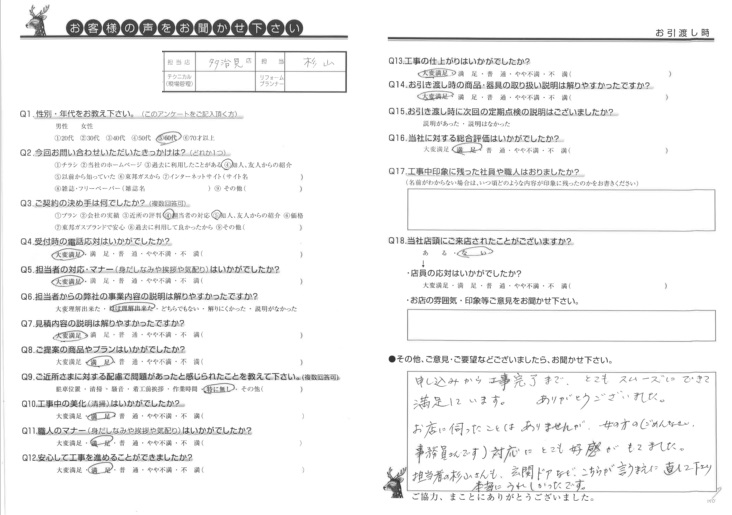 お客様の声をお聞かせ下さい
担当店 多治見店 担当 杉山
テクニカル(現場管理) リフォームプランナー
Q1.性別・年代をお教え下さい。(このアンケートをご記入頂く方)
男性 女性
①20代 ②30代 ③40代 ④50代 ⑤60代 ⑥70才以上
Q2.今回お問い合わせいただいたきっかけは?(どれか1つ)
①チラシ ②当社のホームページ ③過去に利用したことがある ④知人、友人からの紹介
⑤以前から知っていた ⑥東邦ガスから ⑦インターネットサイト(サイト名 )
⑧雑誌・フリーペーパー(雑誌名 ) ⑨その他( )
Q3.ご契約の決め手は何でしたか?(複数回答可)
①プラン ②会社の実績 ③近所の評判 ④担当者の対応 ⑤知人、友人からの紹介 ⑥価格
⑦東邦ガスブランドで安心 ⑧過去に利用して良かったから ⑨その他( )
Q4.受付時の電話応対はいかがでしたか?
大変満足・満足・普通・やや不満・不満( )
Q5.担当者の対応・マナー(身だしなみや挨拶や気配り)はいかがでしたか?
大変満足・満足・普通・やや不満・不満( )
Q6.担当者からの弊社の事業内容の説明は解りやすかったですか?
大変理解出来た・ほぼ理解出来た・どちらでもない・解りにくかった・説明がなかった
Q7.見積内容の説明は解りやすかったですか?
大変満足・満足・普通・やや不満・不満( )
Q8.ご提案の商品やプランはいかがでしたか?
大変満足・満足・普通・やや不満・不満( )
Q9.ご近所さまに対する配慮で問題があったと感じられたことを教えて下さい。(複数回答可)
駐車位置・清掃・騒音・着工前挨拶・作業時間・特に無し・その他( )
Q10.工事中の美化(清掃)はいかがでしたか?
大変満足・満足・普通・やや不満・不満( )
Q11.職人のマナー(身だしなみや挨拶や気配り)はいかがでしたか?
大変満足・満足・普通・やや不満・不満( )
Q12.安心して工事を進めることができましたか?
大変満足・満足・普通・やや不満・不満( )
お引渡し時
Q13.工事の仕上がりはいかがでしたか?
大変満足・満足・普通・やや不満・不満( )
Q14.お引き渡し時の商品・器具の取り扱い説明は解りやすかったですか?
大変満足・満足・普通・やや不満・不満( )
Q15.お引き渡し時に次回の定期点検の説明はございましたか?
説明があった・説明はなかった
Q16.当社に対する総合評価はいかがでしたか?
大変満足・満足・普通・やや不満・不満( )
Q17.工事中印象に残った社員や職人はおりましたか?
(名前がわからない場合は、いつ頃どのような内容が印象に残ったのかをお書きください)
Q18.当社店頭にご来店されたことがございますか?
ある・ない
↓
・店員の応対はいかがでしたか?
大変満足・満足・普通・やや不満・不満( )
・お店の雰囲気・印象等ご意見をお聞かせ下さい。
●その他、ご意見・ご要望などございましたら、お聞かせ下さい。
申し込みから工事完了まで、とてもスムーズにできて
満足しています。 ありがとうございました。
お店に伺ったことはありませんが、女の方の(ごめんなさい、
事務員さんです)対応にとても好感がもてました。
担当者の杉山さんも、玄関ドアなど、こちらが言うまえに直して下さり
本当にうれしかったです。
ご協力、まことにありがとうございました。